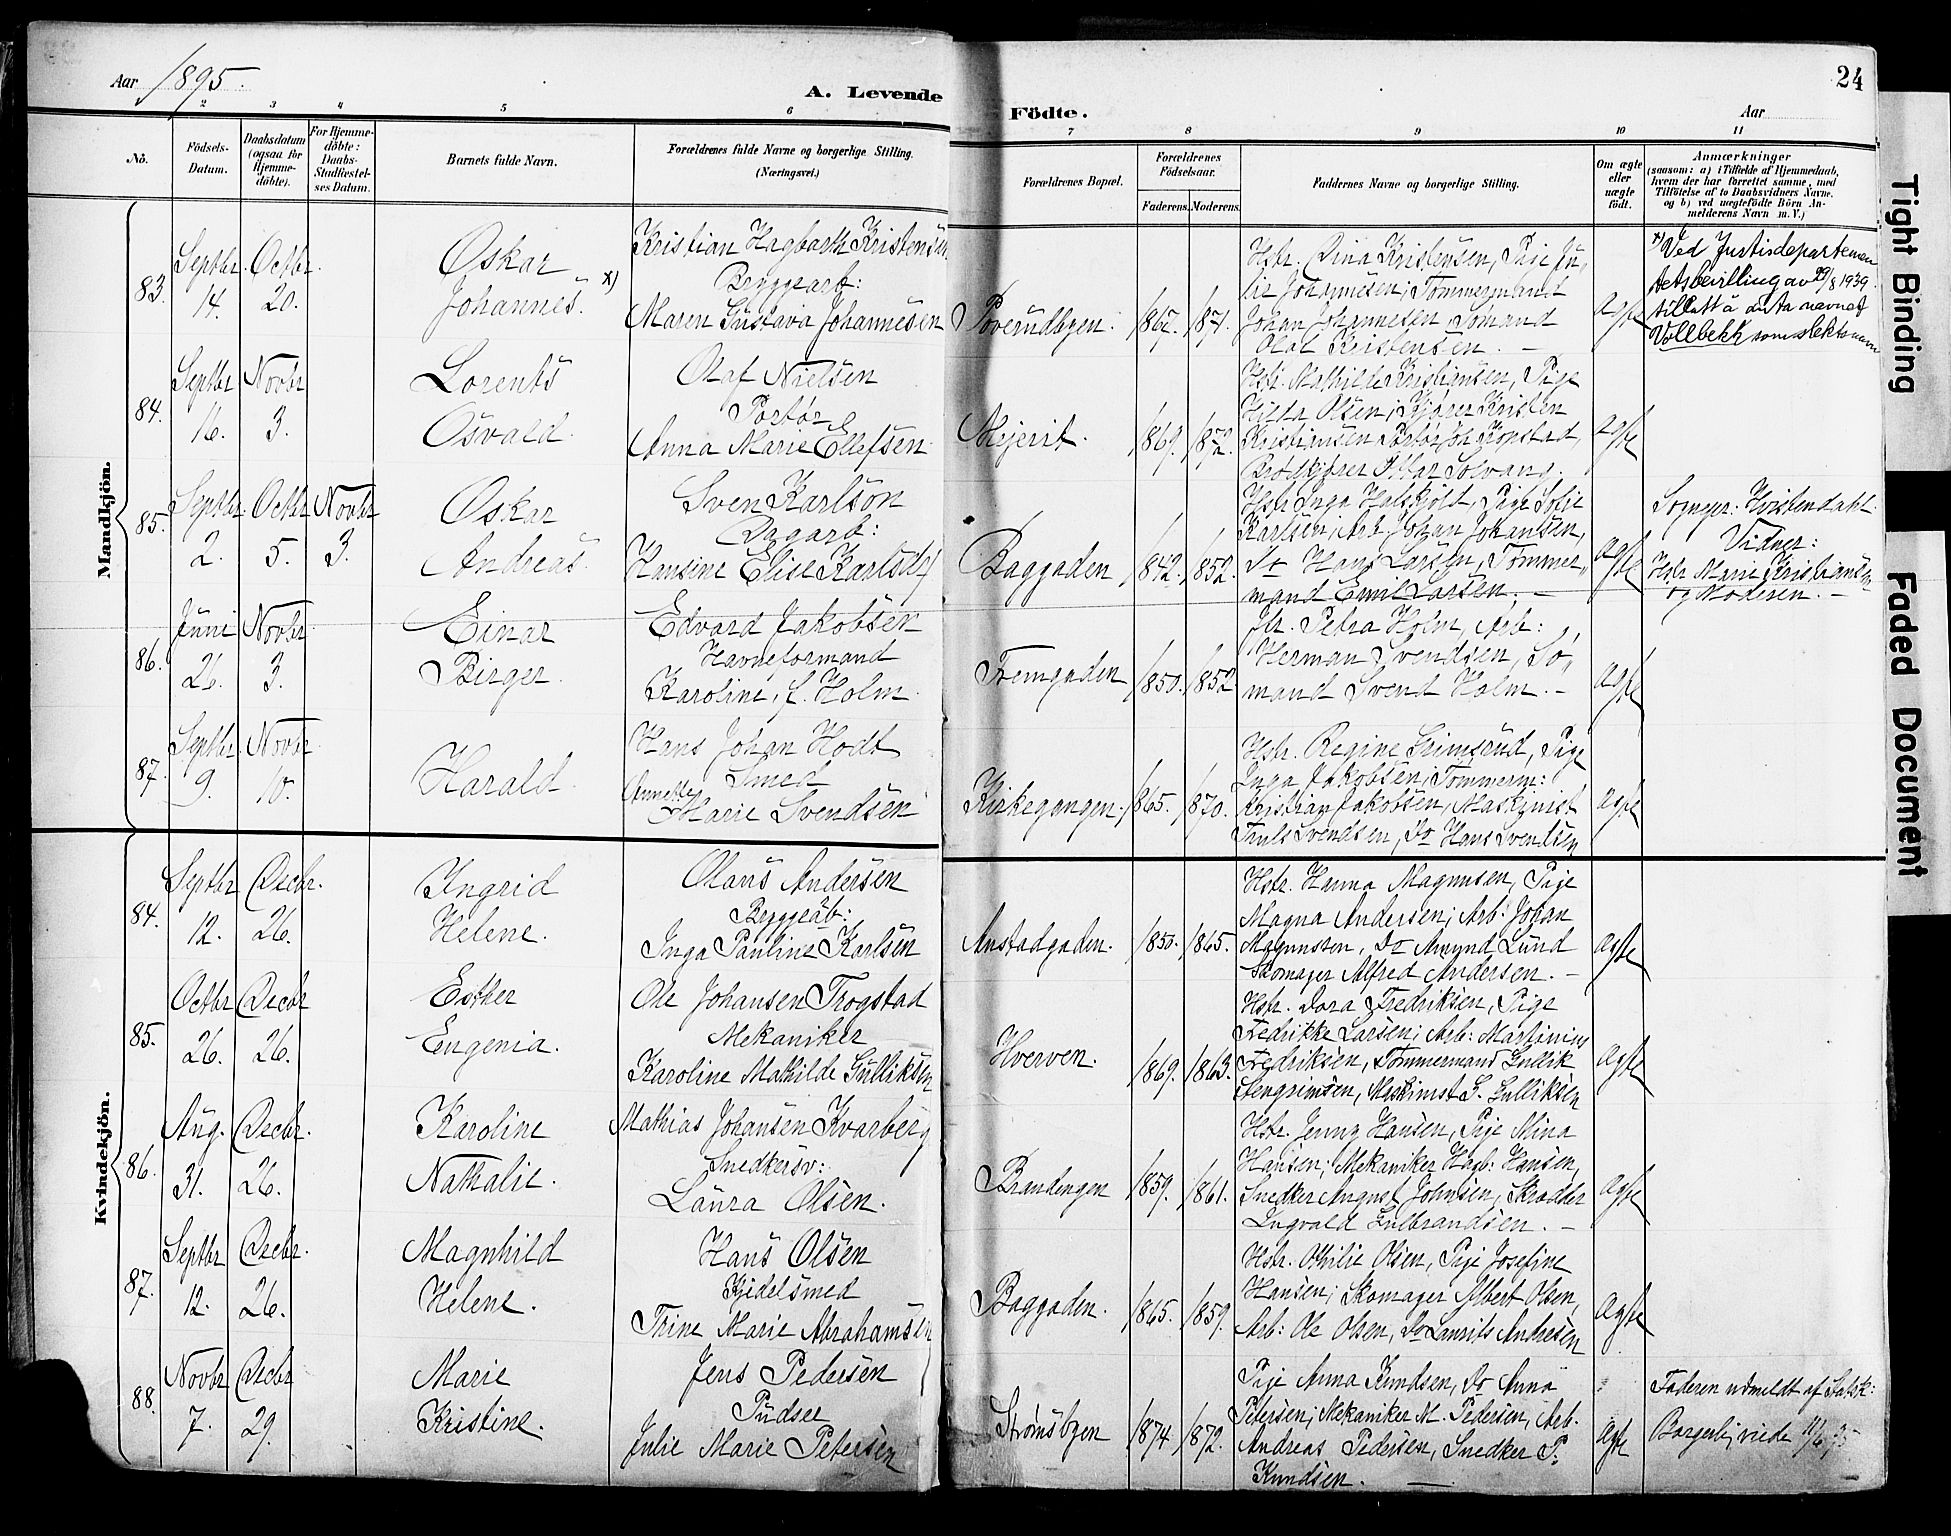 Aar 1895.
A. Levende Födte.
Aar
24
2 3 4 5 6 7 8 9 10 11
No.
Födsels-Datum.
Daabsdatum (ogsaa för Hjemme-döbte).
For Hjemme-döbte: Daabs-Stadfæstel-ses Datum.
Barnets fulde Navn.
Forældrenes fulde Navne og borgerlige Stilling.
(Næringsvei.)
Forældrenes Bopæl.
Forældrenes Födselsaar.
Faderens. Moderens.
Faddernes Navne og borgerlige Stilling.
Om ægte eller uægte födt.
Anmærkninger
(saasom: a) i Tilfælde af Hjemmedaab, hvem der har forrettet samme, med Tilföielse af to Daabsvidners Navne, og b) ved uægtefödte Börn An-melderens Navn m. V.)
Mandkjön.
83. Septbr. 14. Octbr. 20.
Oskar Johannes. x)
Kristian Hagbarth Kristensen
Bryggearb:
Maren Gustava Johannesen
Poverudbyen. 1867. 1871.
Hstr. Dina Kristensen, Pige Ju-
lie Johannesen; Tømmermand
Johan Johannesen, Sømand
Olaf Kristensen. —
ægte
x) Ved Justisdepartemen
tets bevilling av 29/8 1939
tillatt å anta navnet
Vollbekk som slektsnavn
84. Septbr 16. Novbr 3.
Lorents Osvald.
Olaf Nielsen
Portør
Anna Marie Ellefsen.
Mejerit. 1869. 1872.
Hstr. Mathilde Kristiansen, Pige
Hilda Olsen; Kjører Kristen
Kristiansen, Portør Joh. Kopstad,
Brødkjører Solvang.
ægte
85. Septbr. 2. Octbr 5. Novbr 3.
Oskar Andreas.
Sven Karlson
Dagarb:
Hansine Elise Karlsdr
Baggaden 1842. 1852.
Hstr Inga Halskjold, Pige Sofie
Karlsen, Arb. Johan Johansen,
Do Hans Larsen, Tømmer,
mand Emil Larsen. —
ægte
Sogнepr. Hvistendahl.
Vidner:
Hstr Marie Kristiansen
og Moderen. —
86. Juni 26. Novbr 3.
Einar Birger.
Edvard Jakobsen
Havneformand
Karoline, f. Holm.
Fremgaden 1850. 1852
Fr. Petra Holm, Arb:
Herman Svendsen, Sø,
mand Svend Holm. —
ægte
87. Septbr. 9. Novbr 10.
Harald.
Hans Johan Hodt
Smed
Annette Marie Svendsen
Kirkegangen. 1865. 1870.
Hstr. Regine Grimsrud, Pige
Inga Jakobsen; Tømmerm:
Kristian Jakobsen, Maskinist
Truls Svendsen, Do Hans Svendsen
ægte
Kvindekjön.
84. Septbr 12. Decbr. 26.
Ingrid Helene.
Olaus Andersen
Bryggearb:
Inga Pauline Karlsen
Anstadgaden. 1850. 1865.
Hstr. Hanna Magnusen, Pige
Magna Andersen; Arb: Johan
Magnussen, Do Amund Lund
Skomager Alfred Andersen. —
ægte
85. Octbr 26. Decbr 26.
Esther Eugenia.
Ole Johansen Trogstad
Mekaniker
Karoline Mathilde Gulliksen
Hverven. 1869. 1863.
Hstr. Dora Fredriksen, Pige
Fredrikke Larsen; Arb: Martinius
Fredriksen, Tømmermand Gullik
Stengrimsen, Maskinist G. Gulliksen
ægte
86. Aug. 31. Decbr. 26.
Karoline Nathalie.
Mathias Johansen Kvarberg
Snedkersv:
Laura Olsen.
Brandengen 1859. 1861.
Hstr. Jenny Hansen, Pige Mina
Hansen; Mekaniker Hagb: Hansen,
Snedker August Johnsen, Skrædder
Ingvald Gulbrandsen. —
ægte
87. Septbr 12. Decbr. 26.
Magnhild Helene.
Hans Olsen
Kjedelsmed
Trine Marie Abrahamsen
Baggaden. 1865. 1859.
Hstr. Othilie Olsen, Pige Josefine
Hansen; Skomager Albert Olsen,
Arb: Ole Olsen, Do Laurits Andresen
ægte
88. Novbr 7. Decbr 29.
Marie Kristine.
Jens Pedersen
Pudser
Julie Marie Petersen
Strømsbyen 1874. 1872.
Pige Anna Knudsen, Do Anna
Petersen; Mekaniker M. Pedersen, Arb.
Andreas Pedersen, Snedker P.
Knudsen. —
ægte
Faderen udmeldt af Statsk:
Borgerlig viede 11/6 95
Tight Binding
Faded Document